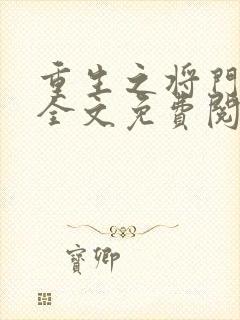 重生之将門
全文免費閱
寶卿